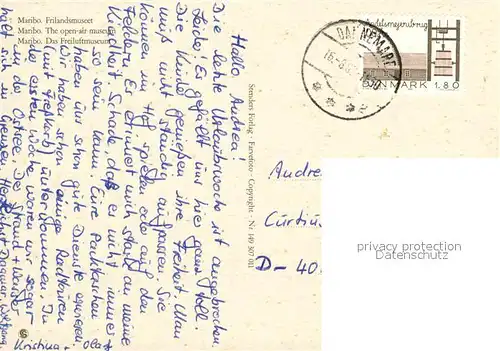 Maribo. Frilandsmuseet
Maribo. The open-air museum
Maribo. Das Freiluftmuseum
Hallo Andrea!
Die letzte Urlaubswoche ist angebrochen.
Leider! Es gefällt uns hier ganz toll.
Die Kinder genießen ihre Freiheit. Man
muß nicht ständig aufpassen. Sie
können im Hof spielen oder auf den
Feldern. Es erinnert mich stark an meine
Kindheit. Schade, daß es nicht immer
so sein kann. Eure Packtaschen
haben uns schon gute Dienste erwiesen.
Wir haben schon einige Radtouren
(mit Gepäck) unternommen. In
der ersten Woche waren wir sogar
in der Ostsee. Der Strand + Wasser
hält sich in Grenzen. Herzlichst Dagmar, Wolfgang,
Kristina + Olaf
Stenders Forlag - Farvefoto - Copyright - Nr 149 307 011
DANNEMARE
DANMARK 1.80
Andre
Curtius
D- 40
privacy protection
watermarks